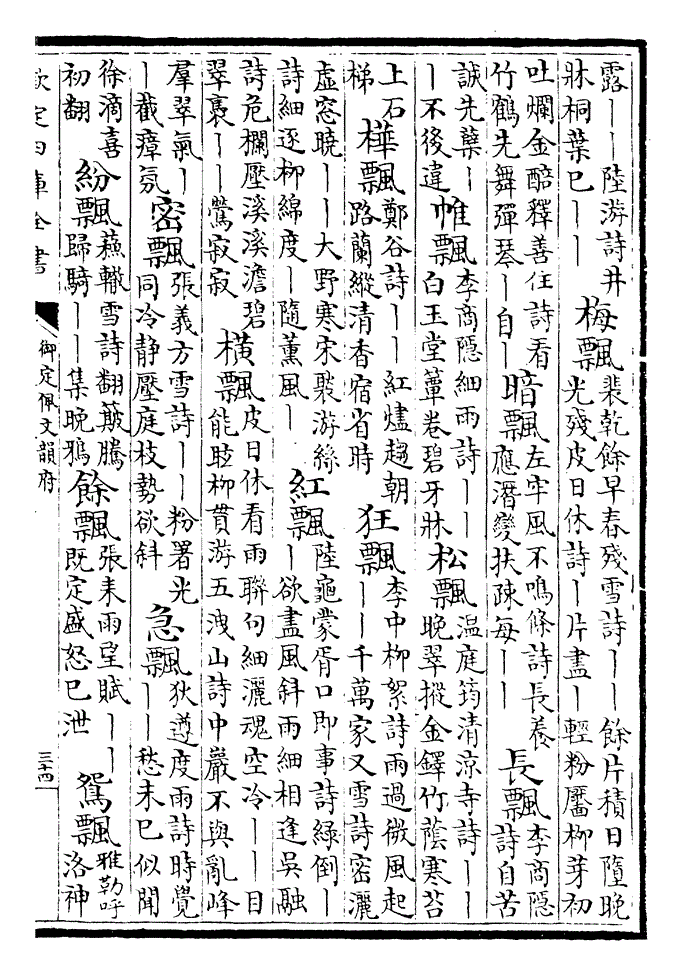 露丨丨陸游詩井牀桐葉已丨丨 梅飄裴乾餘早春殘雪詩丨丨餘片積日隨晚光殘皮日休詩丨片盡丨輕粉靨柳芽初
吐爛金醅釋善住詩看竹鶴先舞彈琴丨自丨 暗飄左牢風不鳴條詩長養應潛變扶疎每丨丨 長飄李商隱詩自苦
誠先蘖丨丨不後違 帷飄李商隱細雨詩丨丨白玉堂簟卷碧牙牀 松飄温庭筠清涼寺詩丨丨晚翠摐金鐸竹蔭寒苔
上石梯 樺飄鄭谷詩丨丨紅燼趨朝路蘭縱清香宿省時 狂飄李中柳絮詩雨過微風起丨丨千萬家又雪詩密灑
虛窓曉丨丨大野寒宋褧游絲詩細逐柳綿度丨隨薰風丨 紅飄陸龜蒙胥口即事詩緑倒丨丨欲盡風斜雨細相逢吳融
詩危欄壓溪溪澹碧翠裹丨丨鶯寂寂 橫飄皮日休看雨聯句細灑魂空冷丨丨目能眩柳貫游五洩山詩中巖不與亂峰
羣翠氣丨丨截瘴氛 密飄張義方雪詩丨丨粉署光同冷静壓庭枝勢欲斜 急飄狄遵度雨詩時覺丨丨愁未已似聞
徐滴喜初翻 紛飄蘇轍雪詩翻簸騰歸騎丨丨集晚鴉 餘飄張耒雨望賦丨丨既定盛怒已泄 鴛飄雅勒呼洛神
欽定四庫全書 御定佩文韻府 三十四